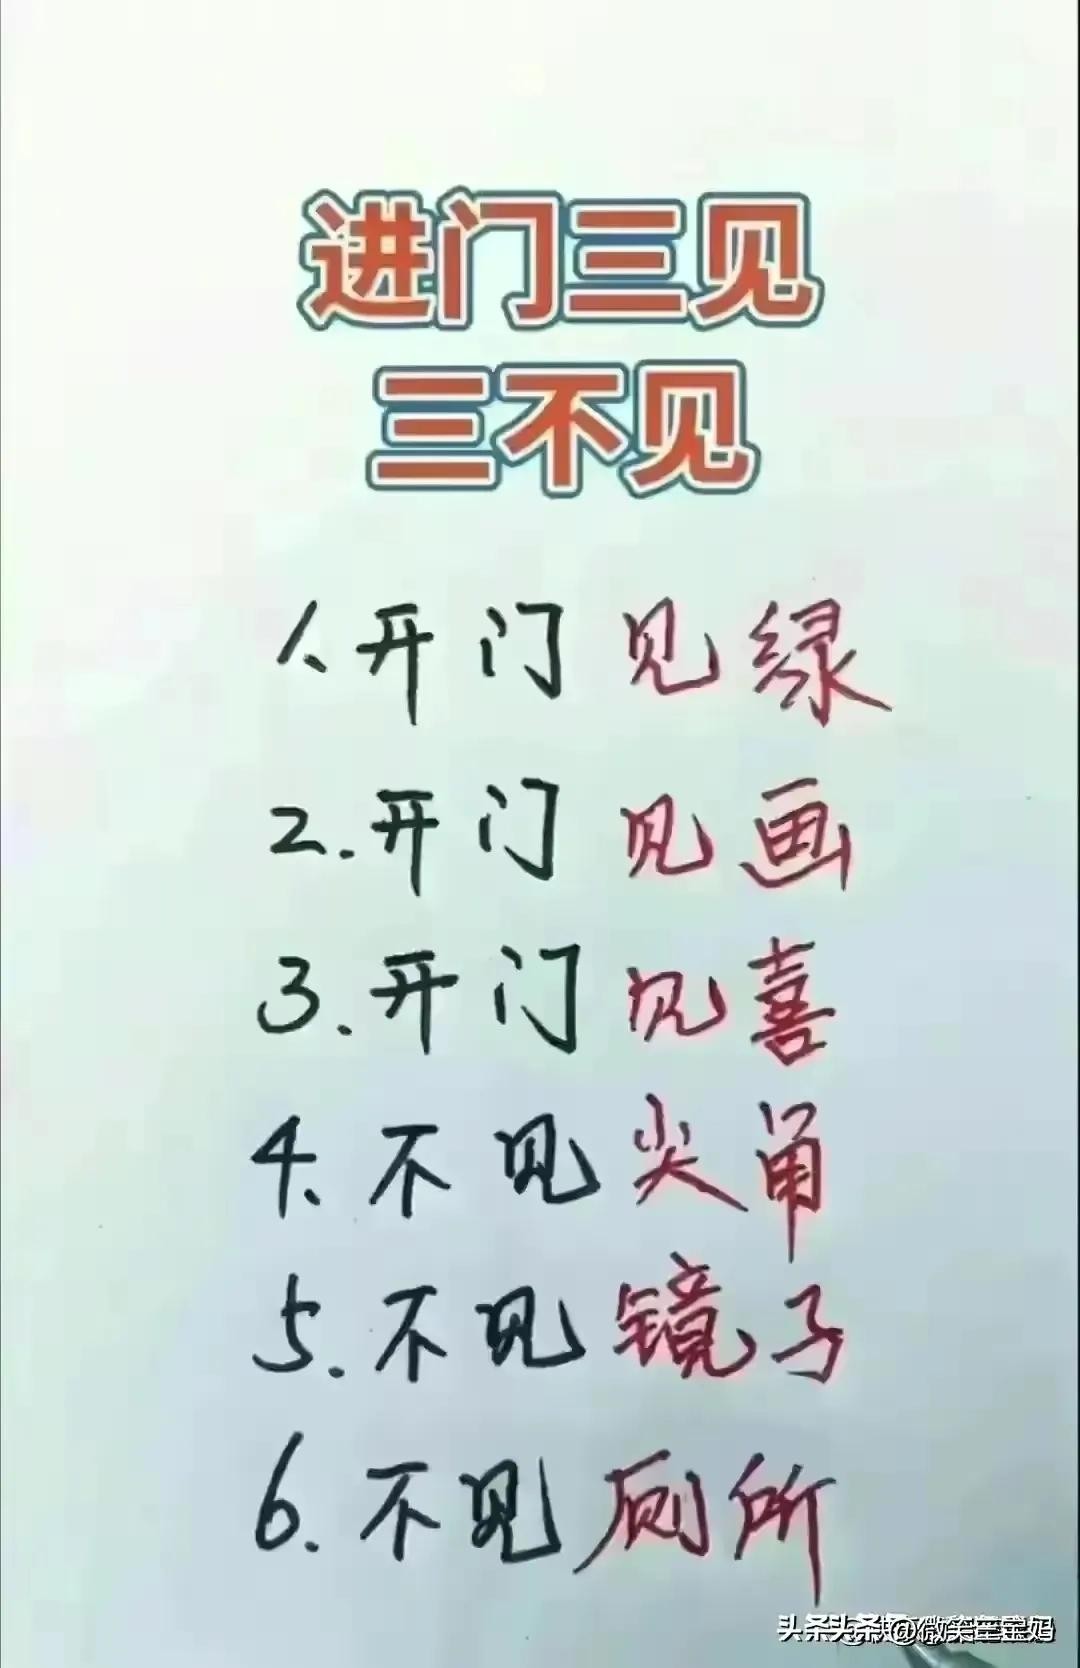 进门三见
三不见
1、开门见绿
2.开门见画
3.开门见喜
4、不见尖角
5.不见镜子
6.不见厕所
头条 @微笑三宝妈